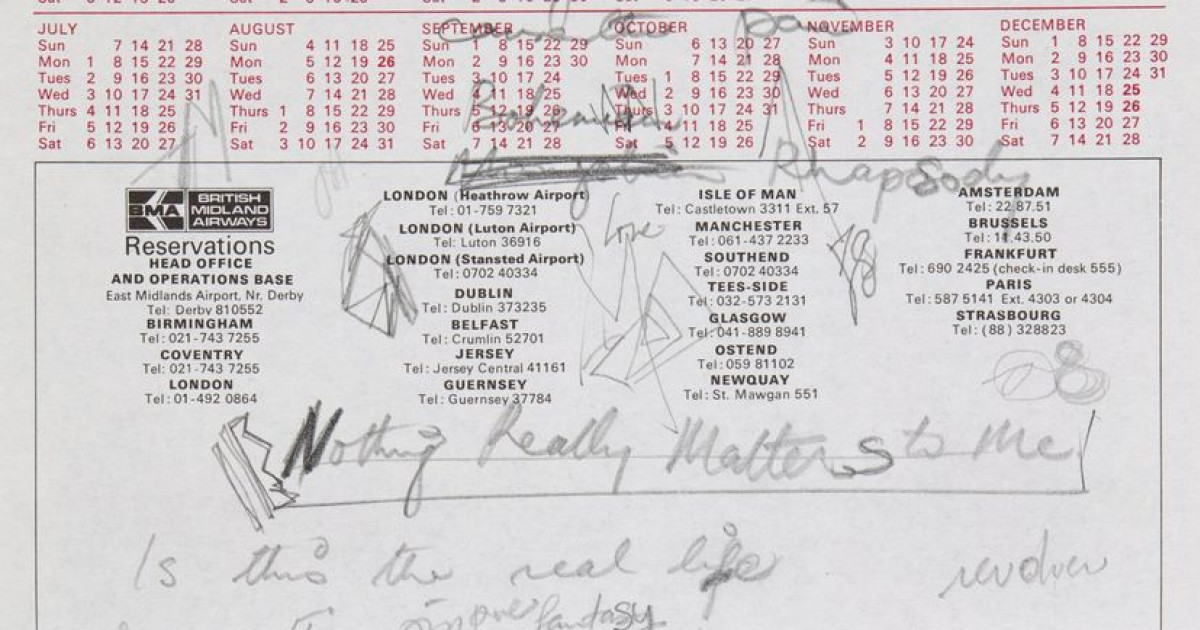 JULY
Sun 7 14 21 28
Mon 1 8 15 22 29
Tues 2 9 16 23 30
Wed 3 10 17 24 31
Thurs 4 11 18 25
Fri 5 12 19 26
Sat 6 13 20 27
AUGUST
Sun 4 11 18 25
Mon 5 12 19 26
Tues 6 13 20 27
Wed 7 14 21 28
Thurs 1 8 15 22 29
Fri 2 9 16 23 30
Sat 3 10 17 24 31
SEPTEMBER
Sun 1 8 15 22 29
Mon 2 9 16 23 30
Tues 3 10 17 24
Wed 4 11 18 25
Thurs 5 12 19 26
Fri 6 13 20 27
Sat 7 14 21 28
OCTOBER
Sun 6 13 20 27
Mon 7 14 21 28
Tues 1 8 15 22 29
Wed 2 9 16 23 30
Thurs 3 10 17 24 31
Fri 4 11 18 25
Sat 5 12 19 26
NOVEMBER
Sun 3 10 17 24
Mon 4 11 18 25
Tues 5 12 19 26
Wed 6 13 20 27
Thurs 7 14 21 28
Fri 1 8 15 22 29
Sat 2 9 16 23 30
DECEMBER
Sun 1 8 15 22 29
Mon 2 9 16 23 30
Tues 3 10 17 24 31
Wed 4 11 18 25
Thurs 5 12 19 26
Fri 6 13 20 27
Sat 7 14 21 28
Bohemian
Rhapsody
BMA BRITISH
MIDLAND
AIRWAYS
Reservations
HEAD OFFICE
AND OPERATIONS BASE
East Midlands Airport, Nr. Derby
Tel: Derby 810552
BIRMINGHAM
Tel: 021-743 7255
COVENTRY
Tel: 021-743 7255
LONDON
Tel: 01-492 0864
LONDON (Heathrow Airport)
Tel: 01-759 7321
LONDON (Luton Airport)
Tel: Luton 36916
LONDON (Stansted Airport)
Tel: 0702 40334
DUBLIN
Tel: Dublin 373235
BELFAST
Tel: Crumlin 52701
JERSEY
Tel: Jersey Central 41161
GUERNSEY
Tel: Guernsey 37784
Love
ISLE OF MAN
Tel: Castletown 3311 Ext. 57
MANCHESTER
Tel: 061-437 2233
SOUTHEND
Tel: 0702 40334
TEES-SIDE
Tel: 032-573 2131
GLASGOW
Tel: 041-889 8941
OSTEND
Tel: 059 81102
NEWQUAY
Tel: St. Mawgan 551
AMSTERDAM
Tel: 22.87.51
BRUSSELS
Tel: 11.43.50
FRANKFURT
Tel: 690 2425 (check-in desk 555)
PARIS
Tel: 587 5141 Ext. 4303 or 4304
STRASBOURG
Tel: (88) 328823
Nothing Really Matters to Me
Is this the real life
fantasy